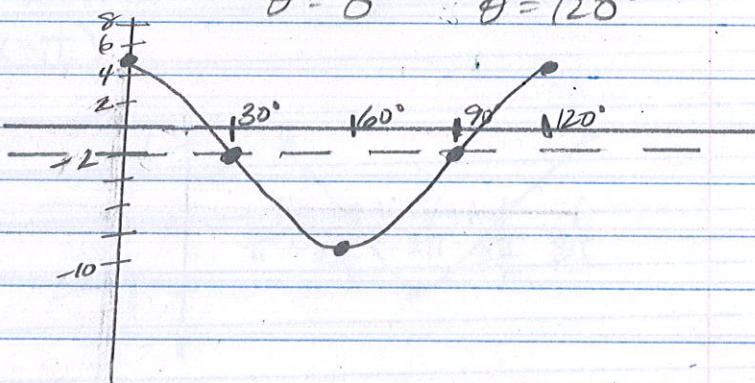 θ = 0 θ = 120
8
6
4
2
30° 60° 90 120°
-2
-10